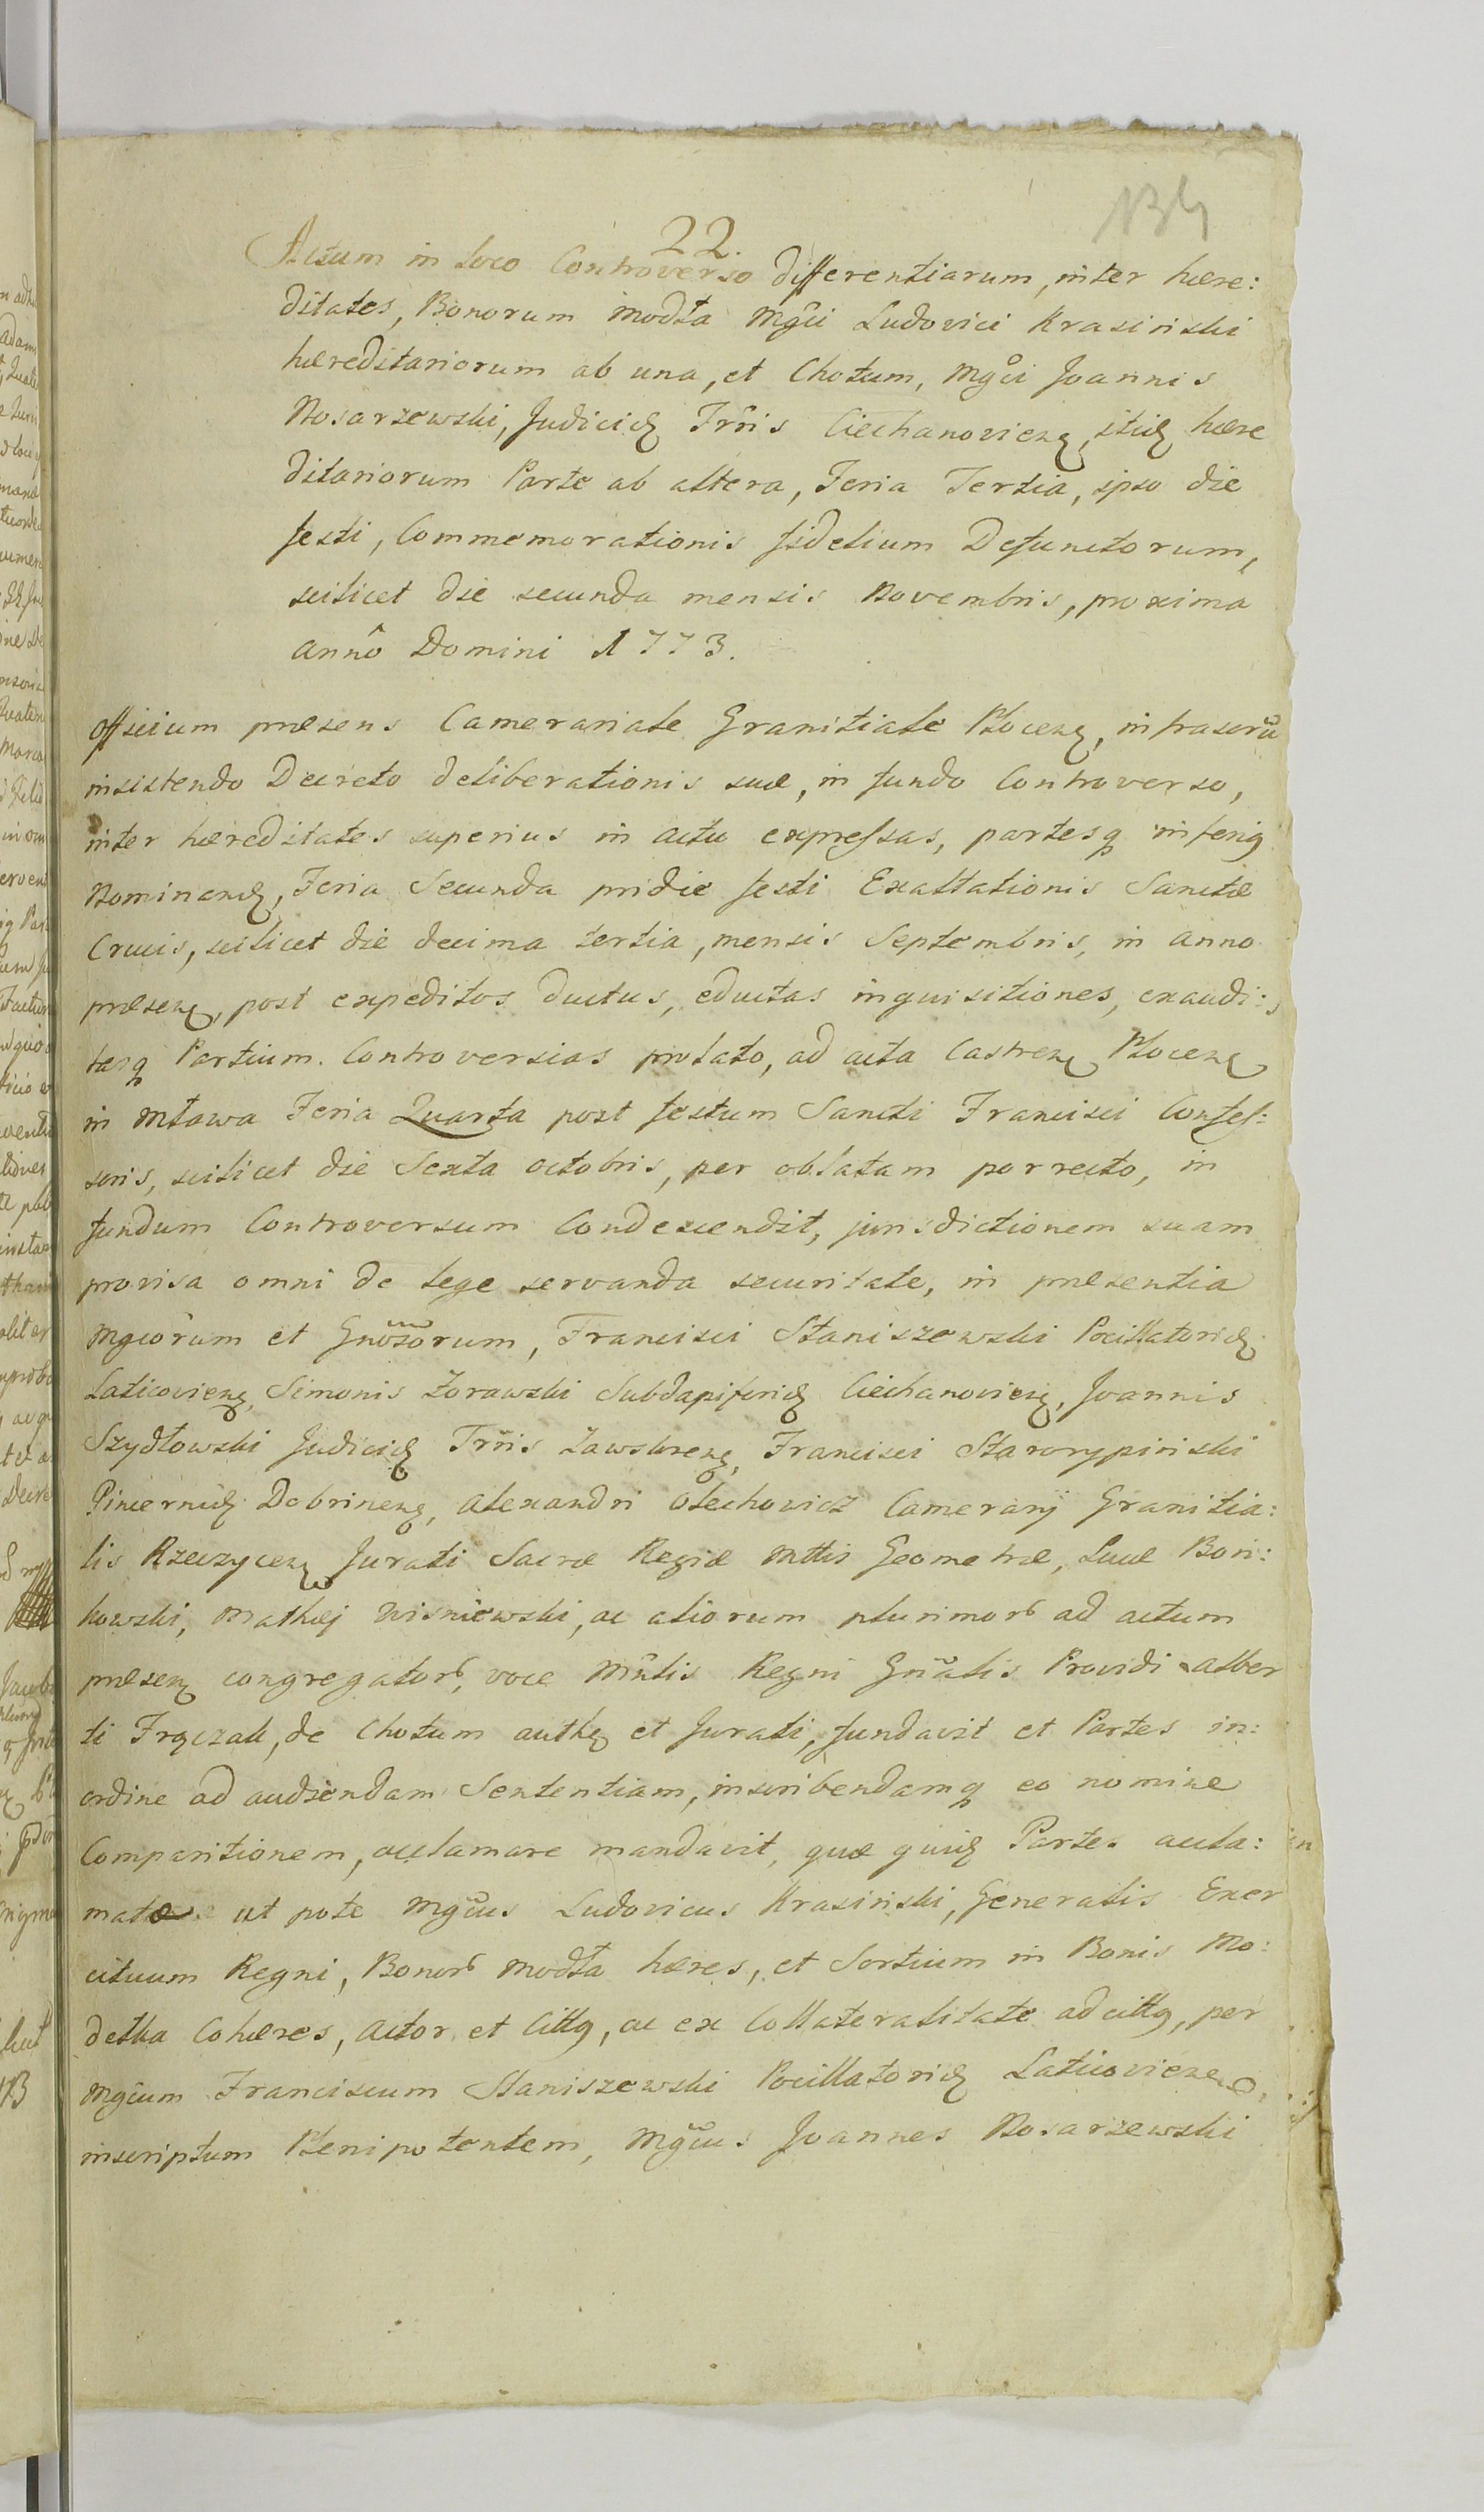 22.
Actum in loco Controverso differentiarum, inter hære:
ditates, Bonorum Modła Mgci Ludovici Krasiński
hæreditariorum ab una, et Chotum, Mgci Joannis
Nosarzewski, Judicidę Trris Ciechanovienę, itidę hære
ditariorum Parte ab altera, Feria Tertia, ipso die
festi, Commemorationis fidelium Defunctorum,
scilicet die secunda mensis Novembris, proxima
annô Domini 1773.
Officium præsens Camerariale Granitiale Plocenę, infrascrũ
insistendo Decreto deliberationis suæ, in fundo Controverso,
inter hæreditates superius in actu expressas, partesq inferiꝯ
Nominandę, Feria Secunda pridie festi Exaltationis Sanctæ
Crucis, scilicet die decima tertia, mensis Septembris, in anno
præsenę, post expeditos ductus, eductas inquisitiones, exaudi:
tasq Partium Controversias prolato, ad acta Castrenę Plocenę
in Mława Feria Quarta post festum Sancti Francisci Confes:
soris, scilicet die Sexta octobris, per oblatam porrecto, in
fundum Controversum Condescendit, jurisdictionem suam
provisa omni de lege servanda securitate, in præsentia
Mgcorum et Gnosorum, Francisci Staniszewski Pocillatoridę
Laticovienę, Simonis Żorawski Subdapiferidę Ciechanovienę, Joannis
Szydłowski Judicidę Trris Zawskrenę, Francisci Starorypiński
Pincernidę Dobrinenę, Alexandri Olechowicz Camerarij Granitia:
lis Rzeczycenę Jurati Sacræ Regiæ Mttis Geometræ, Lucæ Bori:
kowski, Mathæj Wisniewski, ac aliorum plurimorꝯ ad actum
præsenę congregatorꝯ, voce Mintlis Regni Gnalis Providi Alber
ti Frączak, de Chotum authę et Jurati, fundavit et Partes in:
ordine ad audiendam Sententiam, inscribendamq eo nomine
Comparitionem, acclamare mandavit, quæ quidę Partes accla:
matæ ut pote Mgcus Ludovicus Krasiński, Generalis Exer
cituum Regni, Bonorꝯ Modła hæres, et Sortium in Bonis Mo:
dełka Cohæres, Actor et Cittꝯ, ac ex Collateralitate adcittꝯ, per
Mgcum Franciscum Staniszewski Pocillatoridę Laticovienę
inscriptum Plenipotentem, Mgcus Joannes Nosarzewski